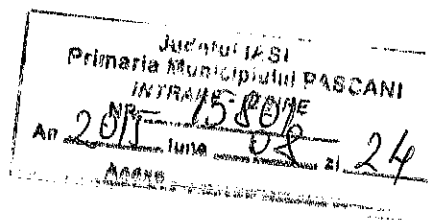 Judetul IASI
Primaria Municipiului PASCANI
INTRARE-IESIRE
NR. 15801
An 2011 luna 08 zi 24
Anexe